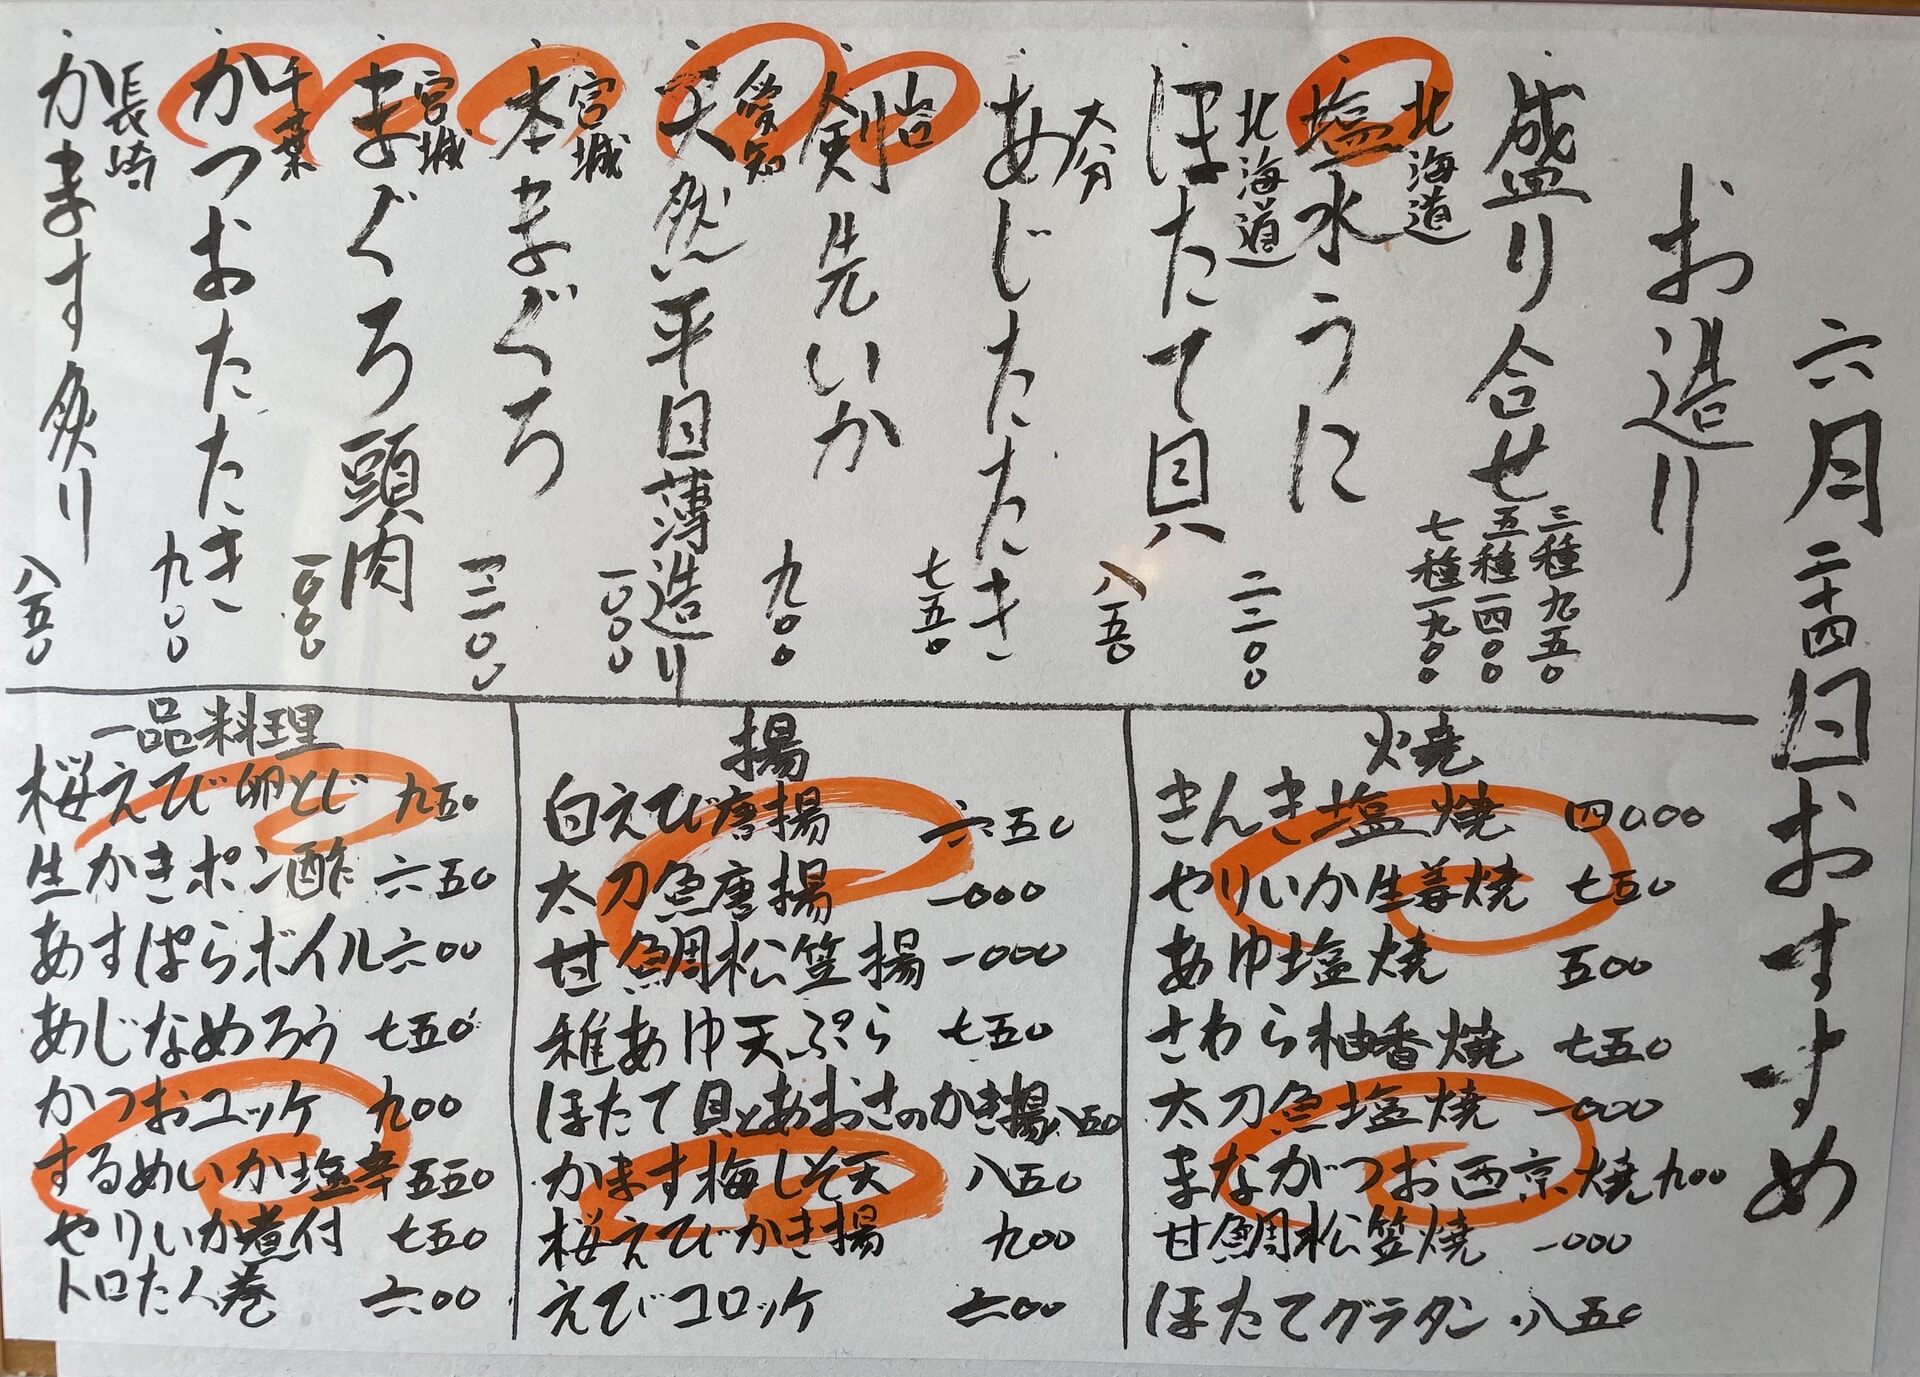 六月二十四日おすすめ
お造り
盛り合せ
三種九五〇
五種一四〇〇
七種一九〇〇
北海道
塩水うに
二二〇〇
北海道
ほたて貝
八五〇
大分
あじたたき
七五〇
剣先いか
九〇〇
愛知
天然平目薄造り
一〇〇〇
宮城
本まぐろ
宮城
まぐろ頭肉
一〇〇〇
千葉
かつおたたき
九〇〇
長崎
かます炙り
八五〇
焼
きんき塩焼 四〇〇〇
やりいか生姜焼 七五〇
あゆ塩焼 五〇〇
さわら柚香焼 七五〇
太刀魚塩焼 一〇〇〇
まながつお西京焼 九〇〇
甘鯛松笠焼 一〇〇〇
ほたてグラタン 八五〇
揚
白えび唐揚 六五〇
太刀魚唐揚 一〇〇〇
甘鯛松笠揚 一〇〇〇
稚あゆ天ぷら 七五〇
ほたて貝とあおさのかき揚 八五〇
かます梅しそ天 八五〇
桜えびかき揚 九〇〇
えびコロッケ 六〇〇
一品料理
桜えび卵とじ 九五〇
生かきポン酢 六五〇
あすぱらボイル 六〇〇
あじなめろう 七五〇
かつおユッケ 九〇〇
するめいか塩辛 五五〇
やりいか煮付 七五〇
トロたく巻 六〇〇